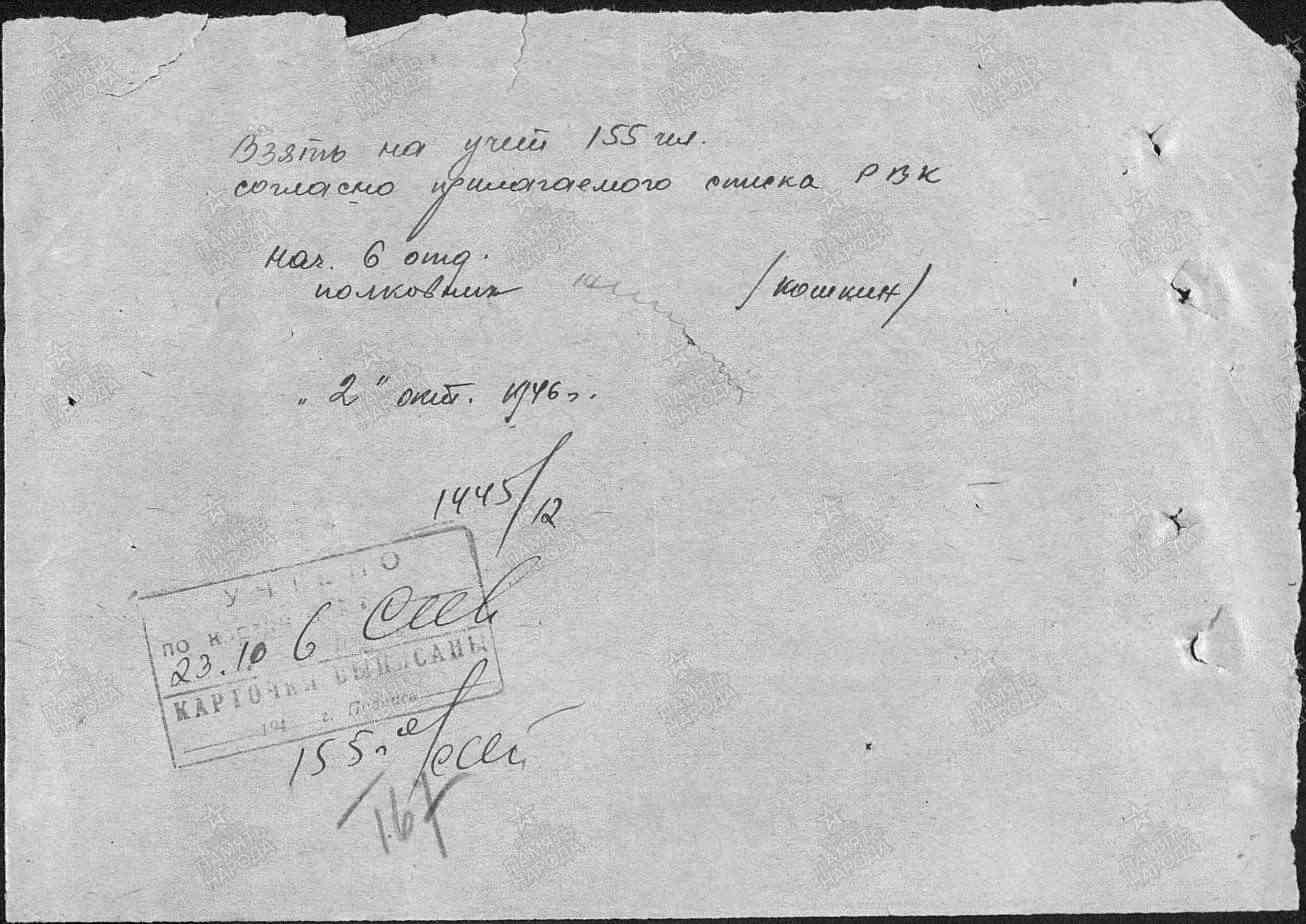 Взять на учет 155 чел.
согласно прилагаемого списка РВК
нач. 6 отд.
полковник /Кошкин/
"2" окт. 1946 г.
1445/12
УЧТЕНО
ПО
23.10 6
КАРТОЧКИ ВЫПИСАНЫ
194 г. Подпись
155
167